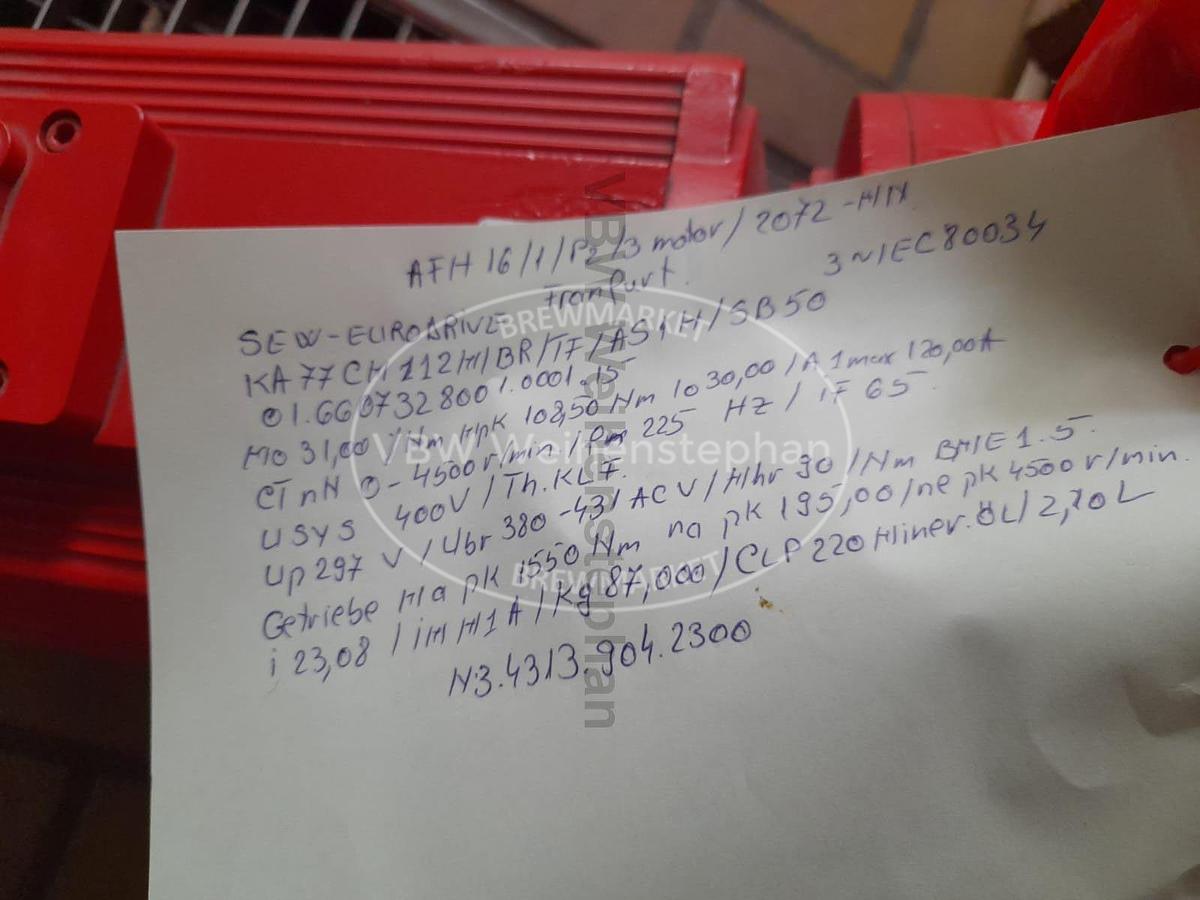 AFH 16/1/P2/3 motor/2072-HIN
Franfurt.
SEW-EURODRIVE 3~IEC80034
KA77CH112M/BR/TF/AS1H/SB50
01.6607328001.0001.15
Mo 31,00/Nm Mpk 108,50 Nm Io 30,00/A Imax 120,00A
CTnN 0-4500 r/min/Pm 225 HZ/IF 65.
USYS 400V/Th.KL F.
Up 297 V/Ubr 380-431 ACV/Mbr 90/Nm BME 1.5.
Getriebe Ma pk 1550 Nm na pk 195,00/ne pk 4500 r/min.
i 23,08/IM M1A/Kg 87,000/CLP220 Miner.ÖL/2,70L
N3.4313.904.2300
BREWMARKET
VBW Weihenstephan
BREWMARKET
VBW Weihenstephan